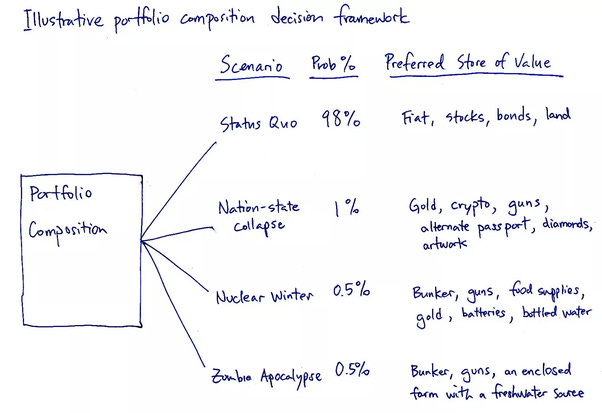 Illustrative portfolio composition decision framework
Scenario Prob % Preferred Store of Value
Status Quo 98% Fiat, stocks, bonds, land
Portfolio
Composition
Nation-state
collapse
1%
Gold, crypto, guns,
alternate passport, diamonds,
artwork
Nuclear Winter 0.5% Bunker, guns, food supplies,
gold, batteries, bottled water
Zombie Apocalypse 0.5% Bunker, guns, an enclosed
farm with a freshwater source